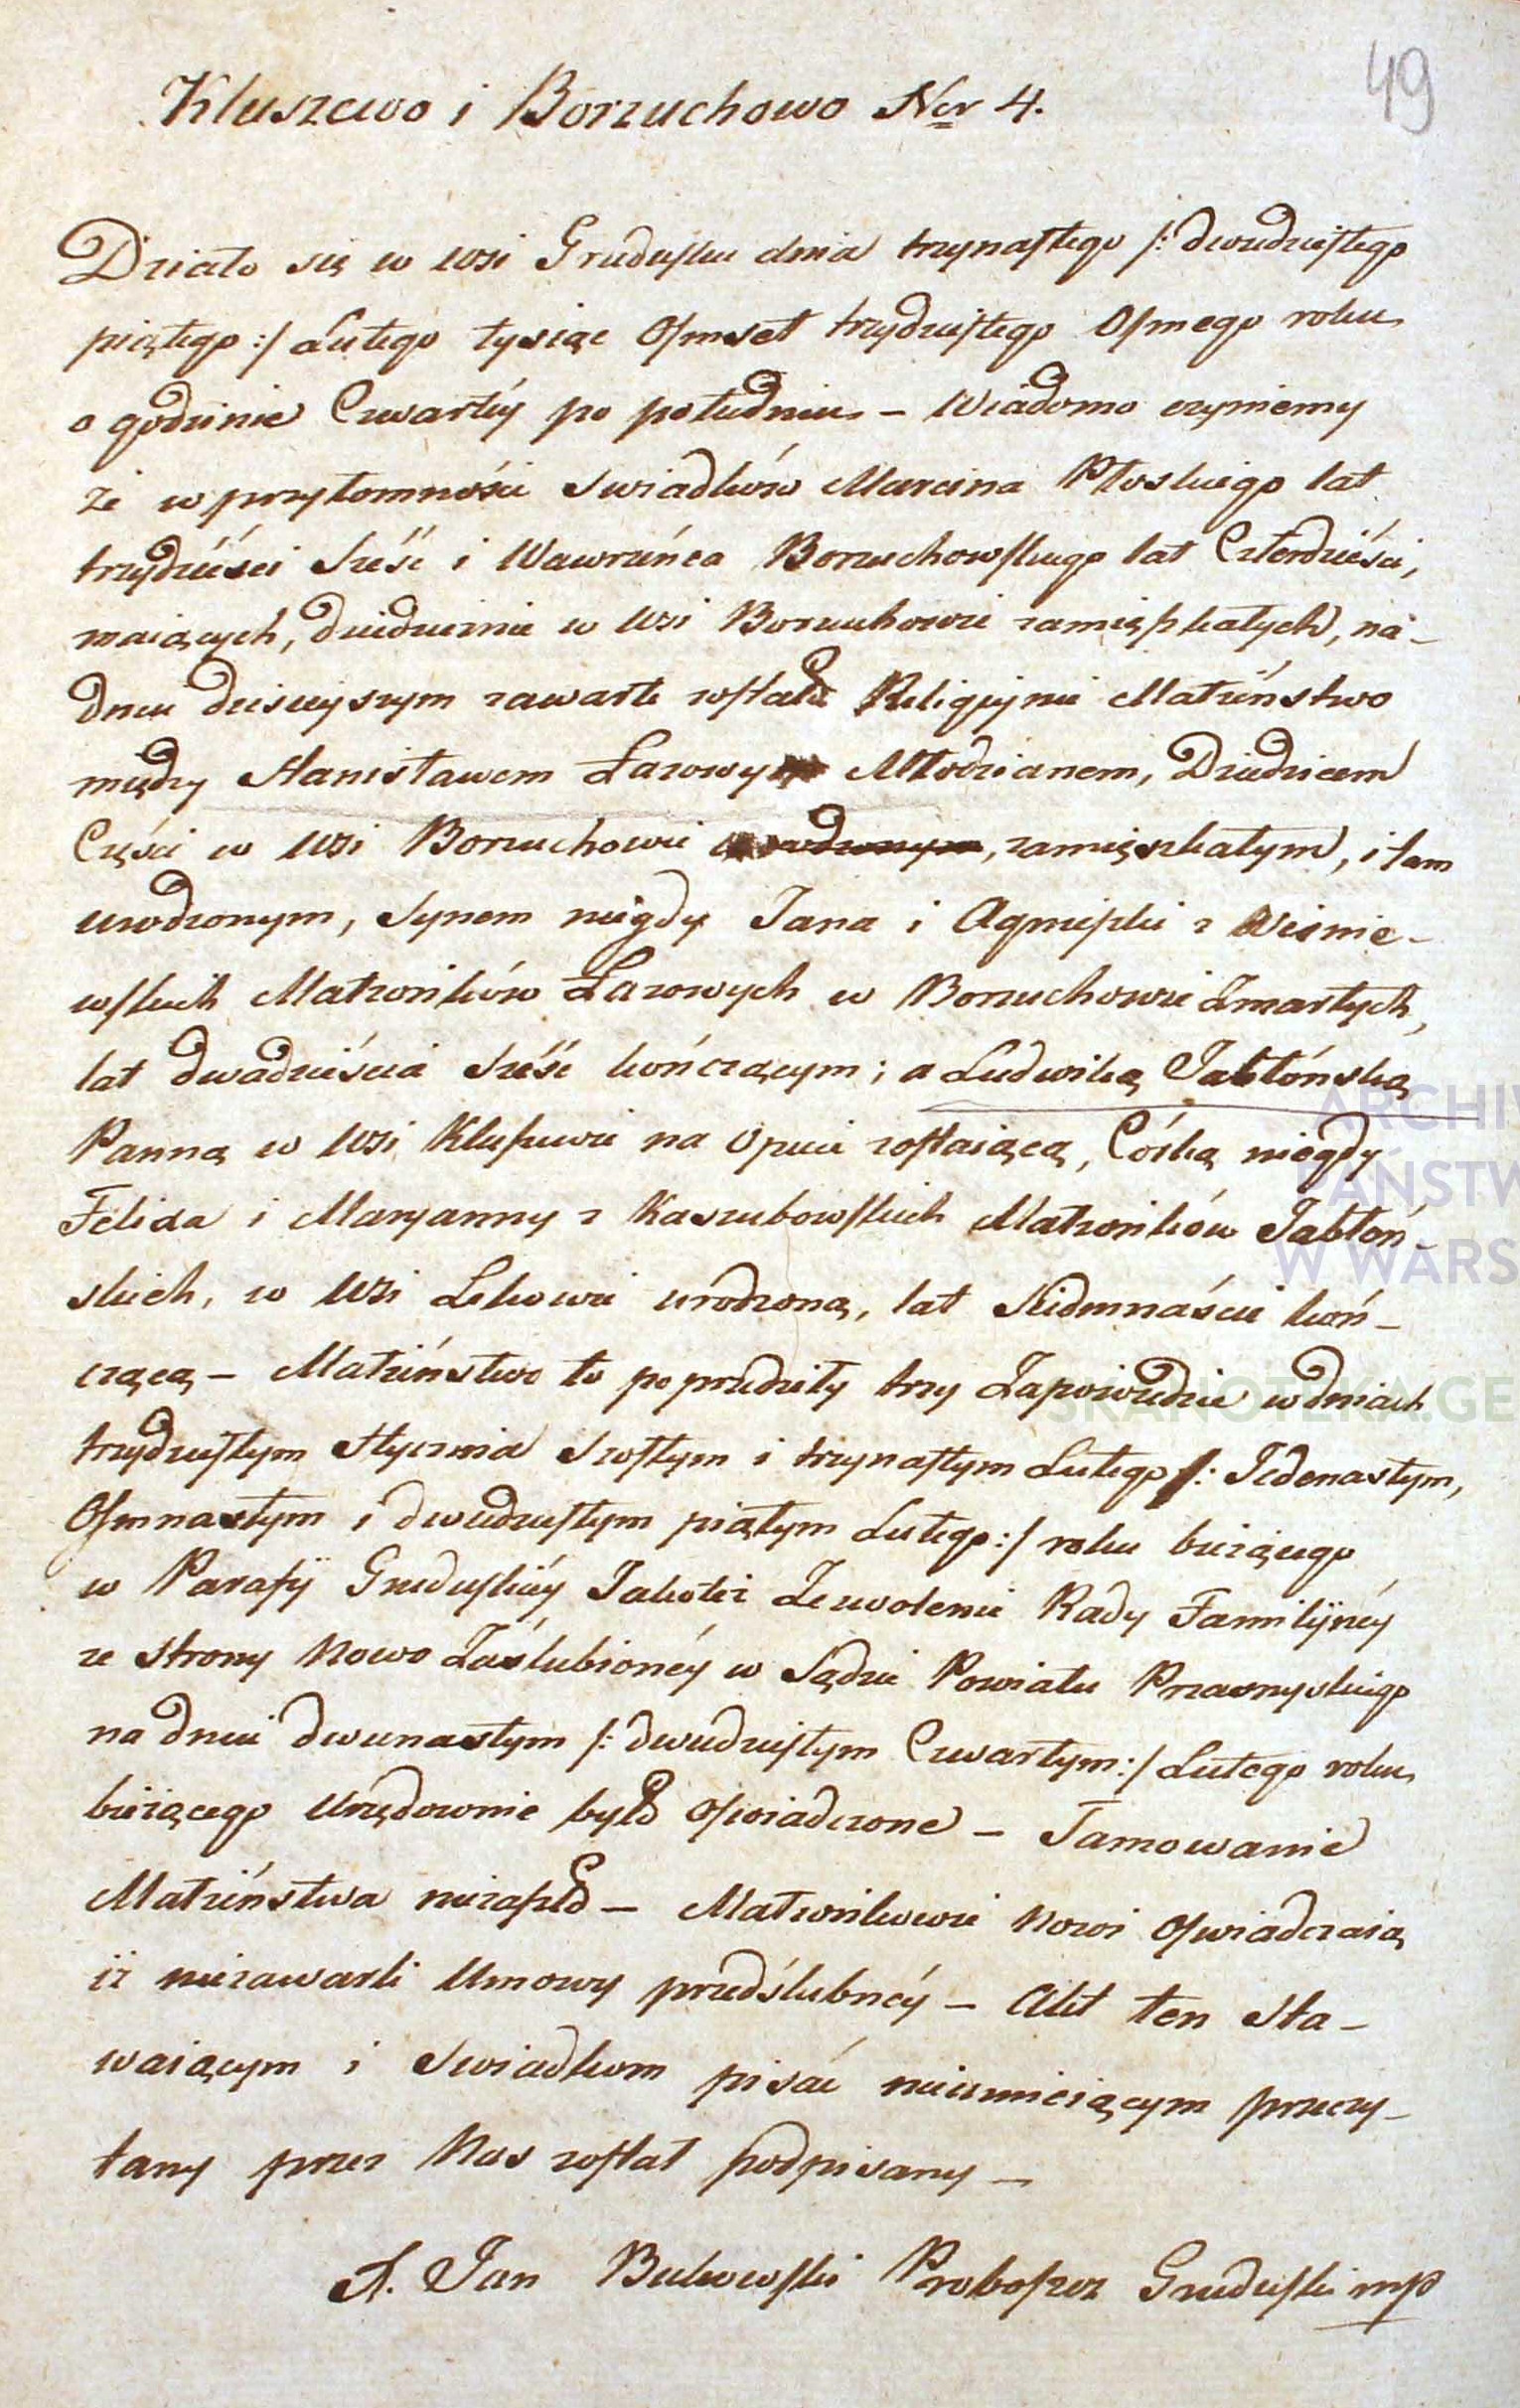 49
Kluszewo i Borzuchowo Ner 4.
Działo się w wsi Grudusku dnia trzynastego /: dwudziestego
piątego :/ Lutego tysiąc Osmset trzydziestego Osmego roku
o godzinie Czwartéy po południu – Wiadomo czyniemy
że w przytomności Swiadków Marcina Płoskiego lat
trzydzieści sześć i Wawrzeńca Borzuchowskiego lat Czterdzieści,
maiących, dziedzicznie w wsi Borzuchowie zamięszkałych, na-
dniu dzisieyszym zawarte zostało Religiynie Małżeństwo
między Stanisławem Łazowym Młodzianem, Dziedzicem
Części w wsi Borzuchowie urodzonym, zamięszkałym, i tam
urodzonym, Synem niegdy Jana i Agnieszki z Wiśnie-
wskich Małżonków Łazowych w Borzuchowie Zmarłych,
lat dwadzieścia sześć kończącym; a Ludwiką Jabłońską
Panną w wsi Kluszewie na opiece zostaiącą, Córką niegdy
Felixa i Maryanny z Kaszubowskich Małżonków Jabłoń-
skich, w wsi Lekowie urodzoną, lat Siedmnaście koń-
czącą – Małżeństwo to poprzedziły trzy Zapowiedzie w dniach
trzydziestym Stycznia Szostym i trzynastym Lutego /: Jedenastym,
Osmnastym i dwudziestym piątym Lutego :/ roku bieżącego
w Parafÿ Gruduskiéy Jakoteż Zezwolenie Rady Familÿnéy
ze strony Nowo Zaślubionéy w Sądzie Powiatu Przasnyskiego
na dniu dwunastym /: dwudziestym Czwartym :/ Lutego roku
bieżącego Urzędownie było Oswiadczone – Tamowanie
Małżeństwa niezaszło – Małżonkowie Nowi Oswiadczaią
iż niezawarli Umowy przedślubnéy – Akt ten Sta-
waiącym i Swiadkom pisać nieumieiącym przeczy-
tany przez Nas został podpisany –
X. Jan Bukowski Proboszcz Gruduski mp
ARCHI
PAŃSTW
W WARS
SKANOTEKA.GE